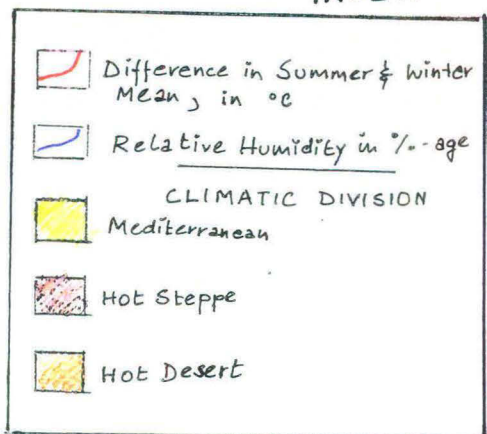 Difference in Summer & Winter
Mean, in °C
Relative Humidity in %-age
CLIMATIC DIVISION
Mediterranean
Hot Steppe
Hot Desert